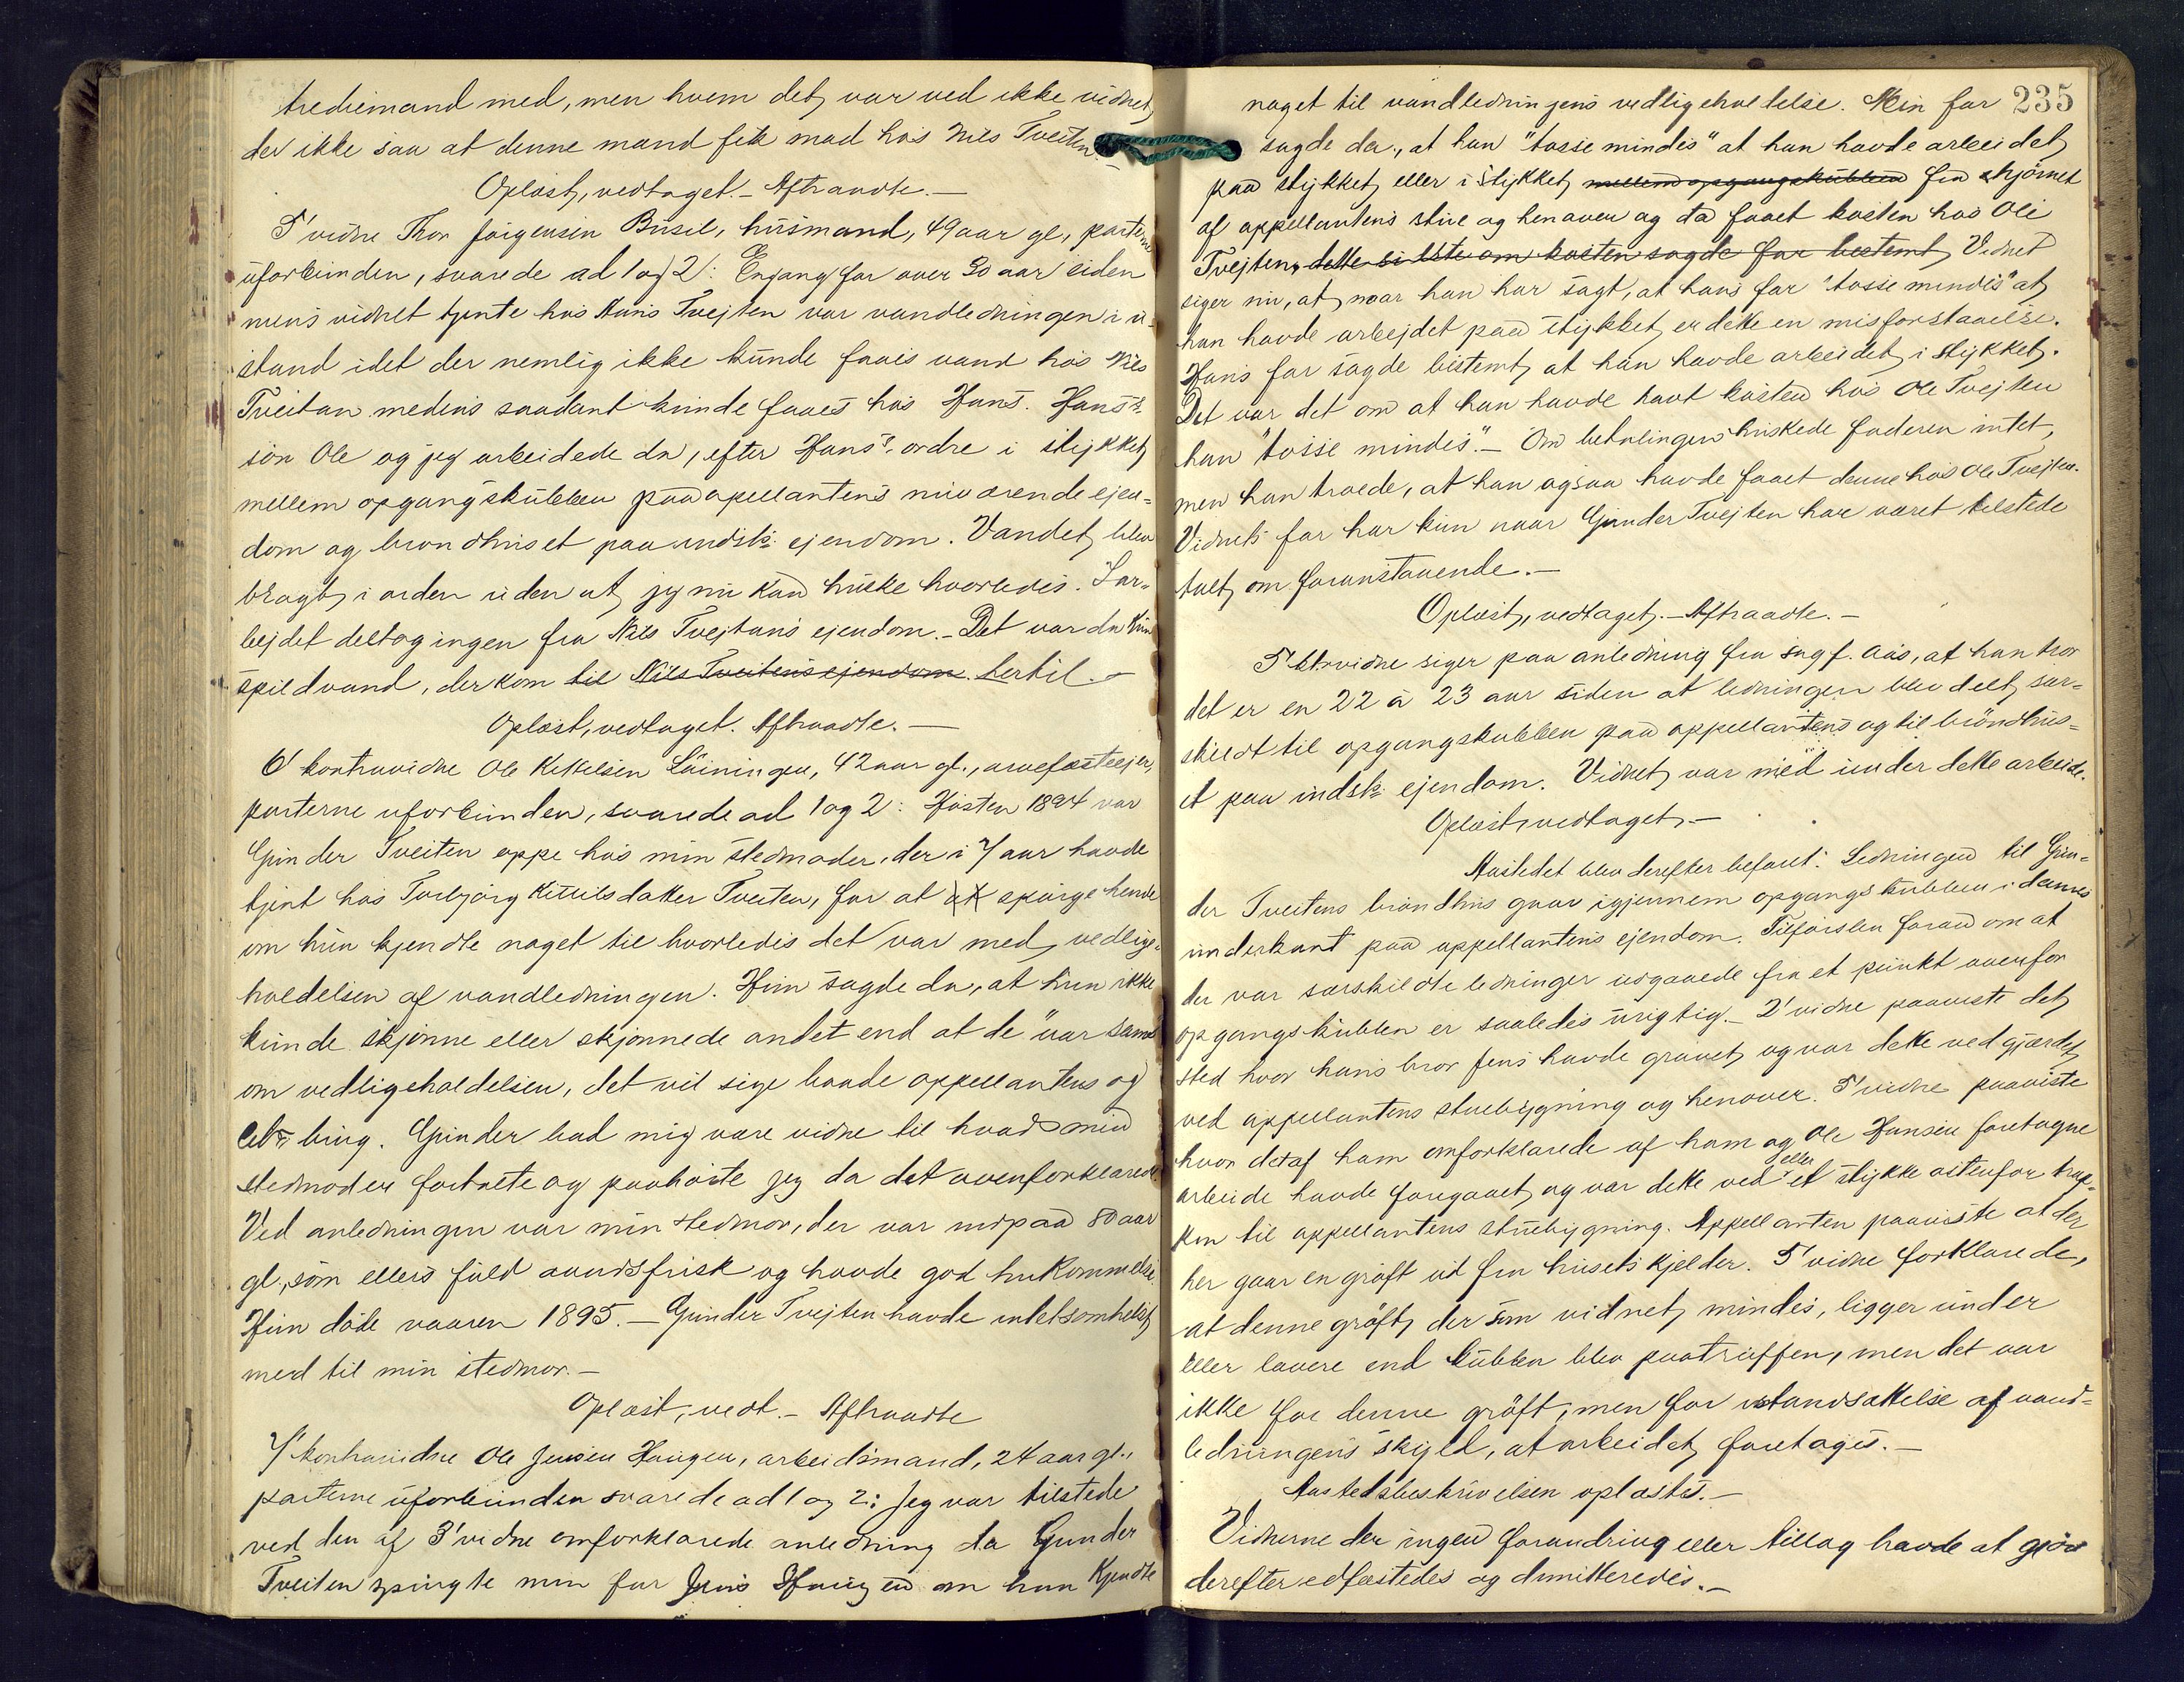 trediemand med, men hvem det var ved ikke vidnet,
der ikke saa at denne mand fik mad hos Nils Tveiten.
Oplæst, vedtaget. – Aftraadte. –
5' vidne Thor Jörgensen Busil, husmand, 49 aar gl., parterne
uforbunden, svarede ad 1 og 2: Engang for over 30 aar siden
mens vidnet tjente hos Hans Tvejten var vandledningen i u-
stand idet der nemlig ikke kunde faaes vand hos Nils
Tveitan medens saadant kunde faaes hos Hans. Hans's
sön Ole og jeg arbeidede da, efter Hans's ordre i stykket
mellem opgangskubben paa apellantens nuværende ejen-
dom og brondhuset paa indstk: ejendom. Vandet blev
bragt i orden uden at jeg nu kan huske hvorledes. I ar-
bejdet deltog ingen fra Nils Tvejtans ejendom. – Det var da kun
spildvand, der kom til Nils Tveitens ejendom hertil. –
Oplæst, vedtaget. Aftraadte. –
6' kontravidne Ole Kittelsen Löiningen, 42 aar gl., arvefæsteejer,
parterne uforbunden, svarede ad 1 og 2: Hösten 1894 var
Gunder Tveiten oppe hos min stedmoder, der i 7 aar havde
tjent hos Torbjörg Kittilsdatter Tveiten, for at at spörge hende
om hun kjendte noget til hvorledes det var med vedlige-
holdelsen af vandledningen. Hun sagde da, at hun ikke
kunde skjönne eller skjönnede andet end at de "var samme
om vedligeholdelsen, det vil sige baade appellantens og
ting. Gunder bad mig være vidne til hvad min
stedmoder fortalte og paahörte jeg da det ovenforklarede.
Ved anledningen var min stedmor, der var indpaa 80 aar
gl., som ellers fuld aandsfrisk og havde god hukommelse.
Hun döde vaaren 1895. – Gunder Tvejten havde intetsomhelst
med til min stedmor. –
Oplæst, vedt. – Aftraadte
7' kontravidne Ole Jensen Haugen, arbeidsmand, 24 aar gl.,
parterne uforbunden svarede ad 1 og 2: Jeg var tilstede
ved den af 3' vidne omforklarede anledning da Gunder
Tveiten spurgte min far Jens Haugen om han kjendte
235
noget til vandledningens vedligeholdelse. Min far
sagde da, at han "tosse mindes" at han havde arbeidet
paa stykket eller i stykket mellem opgangskubben fra hjörnet
af appellantens stue og henover og da faaet kosten hos Ole
Tvejten, dette sidste om kosten sagde far bestemt. Vidnet
siger nu, at naar han har sagt, at hans far "tosse mindes" at
han havde arbejdet paa stykket, er dette en misforstaaelse.
Hans far sagde bestemt, at han havde arbeidet i stykket.
Det var det om at han havde havt kosten hos Ole Tvejten
han "tosse mindes". – Om betalingen huskede faderen intet,
men han troede, at han ogsaa havde faaet denne hos Ole Tvejten.
Vidnets far har kun naar Gunder Tvejten har været tilstede
talt om foranstaaende. –
Oplæst, vedtaget. – Aftraadte. –
5' vidne siger paa anledning fra sagf. Aas, at han tror
det er en 22 à 23 aar siden at ledningen blev delt sær-
skildt til opgangskubben paa appellantens og til bröndhus-
et paa indstk: ejendom. Vidnet var med under dette arbeide.
Oplæst, vedtaget. –
Aastedet blev derefter befaret: Ledningen til Gun-
der Tveitens bröndhus gaar igjennem opgangskubben i dennes
underkant paa appellantens ejendom. Tilförslen foran om at
der var særskildte ledninger udgaaede fra et punkt ovenfor
opgangskubben er saaledes urigtig. – 2' vidne paaviste det
sted hvor hans bror Jens havde gravet og var dette ved gjærdet
ved appellantens stuebygning og henover. 5' vidne paaviste
hvor det af ham omforklarede af ham og Ole Hansen foretagne
arbeide havde foregaaet og var dette ved eller et stykke östenfor trap-
pen til appellantens stuebygning. Appellanten paaviste at der
her gaar en gröft ud fra husets kjelder. 5' vidne forklarede,
at denne gröft, der som vidnet mindes, ligger under
eller lavere end kubben blev paatruffen, men det var
ikke for denne gröft, men for istandsættelse af vand-
ledningens skyld, at arbeidet foretoges. –
Aastedsbeskrivelsen oplæstes. –
Vidnerne der ingen forandring eller tillæg havde at gjöre
derefter edfæstedes og dimitteredes. –